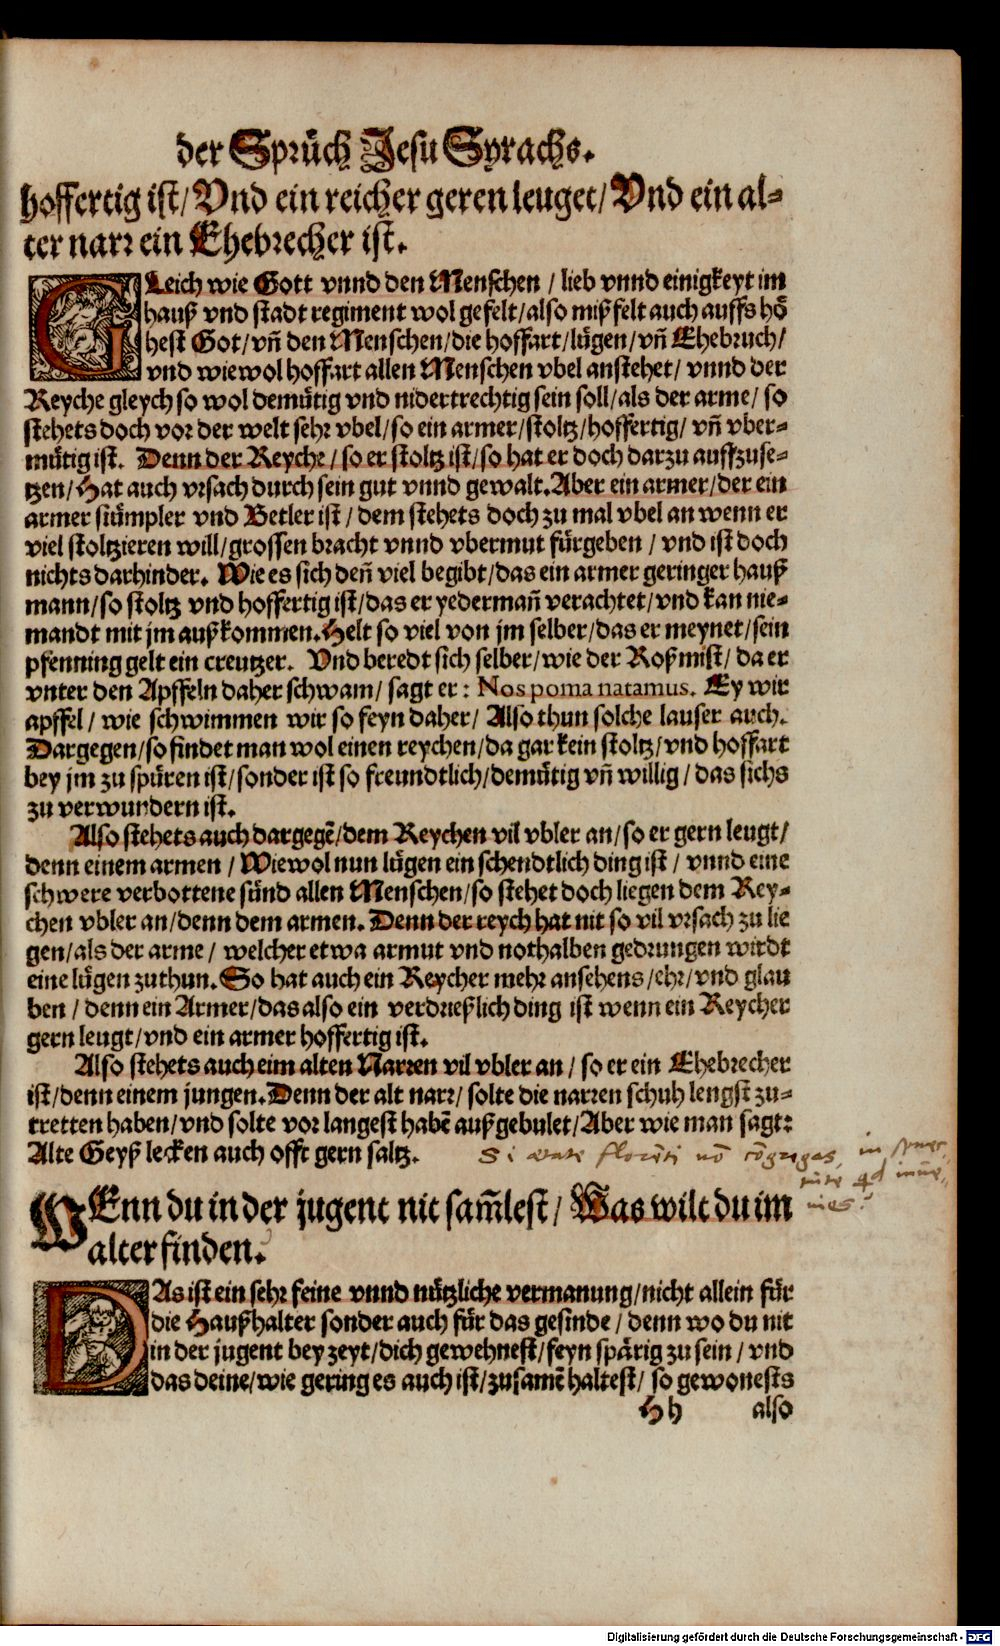 der Sprüch Jesu Syrachs.
hoffertig ist/ Vnd ein reicher geren leuget/ Vnd ein al-
ter narr ein Ehebrecher ist.
GLeich wie Gott vnnd den Menschen / lieb vnnd einigkeyt im
hauß vnd stadt regiment wol gefelt/ also mißfelt auch auffs hö
hest Got/ vñ den Menschen/ die hoffart/ lügen/ vñ Ehebruch/
vnd wiewol hoffart allen Menschen vbel anstehet/ vnnd der
Reyche gleych so wol demütig vnd nidertrechtig sein soll/ als der arme/ so
stehets doch vor der welt sehr vbel/ so ein armer/ stoltz/ hoffertig/ vñ vber-
mütig ist. Denn der Reyche/ so er stoltz ist/ so hat er doch darzu auffzuse-
tzen/ Hat auch vrsach durch sein gut vnnd gewalt. Aber ein armer/ der ein
armer stümpler vnd Betler ist / dem stehets doch zu mal vbel an wenn er
viel stoltzieren will/ grossen bracht vnnd vbermut fürgeben / vnd ist doch
nichts darhinder. Wie es sich deñ viel begibt/ das ein armer geringer hauß
mann/ so stoltz vnd hoffertig ist/ das er yedermañ verachtet/ vnd kan nie-
mandt mit jm außkommen. Helt so viel von jm selber/ das er meynet/ sein
pfenning gelt ein creutzer. Vnd beredt sich selber/ wie der Roßmist/ da er
vnter den Apffeln daher schwam/ sagt er: Nos poma natamus. Ey wir
apffel/ wie schwimmen wir so feyn daher/ Also thun solche lauser auch.
Dargegen/ so findet man wol einen reychen/ da gar kein stoltz/ vnd hoffart
bey jm zu spüren ist/ sonder ist so freundtlich/ demütig vñ willig / das sichs
zu verwundern ist.
Also stehets auch dargegẽ/ dem Reychen vil vbler an/ so er gern leugt/
denn einem armen / Wiewol nun lügen ein schendtlich ding ist / vnnd eine
schwere verbottene sünd allen Menschen/ so stehet doch liegen dem Rey-
chen vbler an/ denn dem armen. Denn der reych hat nit so vil vrsach zu lie
gen/ als der arme / welcher etwa armut vnd nothalben gedrungen wirdt
eine lügen zuthun. So hat auch ein Reycher mehr ansehens/ ehr/ vnd glau
ben / denn ein Armer/ das also ein verdrießlich ding ist wenn ein Reycher
gern leugt/ vnd ein armer hoffertig ist.
Also stehets auch eim alten Narren vil vbler an / so er ein Ehebrecher
ist/ denn einem jungen. Denn der alt narr/ solte die narren schuh lengst zu-
tretten haben/ vnd solte vor langest habẽ außgebulet/ Aber wie man sagt:
Alte Geyß lecken auch offt gern saltz.
Si ætate florẽti nõ cõgregas, in senec-
tute qd inue-
nies?
WEnn du in der jugent nit sam̃lest/ Was wilt du im
alter finden.
DAs ist ein sehr feine vnnd nützliche vermanung/ nicht allein für
die Haußhalter sonder auch für das gesinde / denn wo du nit
in der jugent bey zeyt/ dich gewehnest/ feyn spärig zu sein / vnd
das deine/ wie gering es auch ist/ zusamẽ haltest/ so gewonests
Hh also
Digitalisierung gefördert durch die Deutsche Forschungsgemeinschaft - DFG